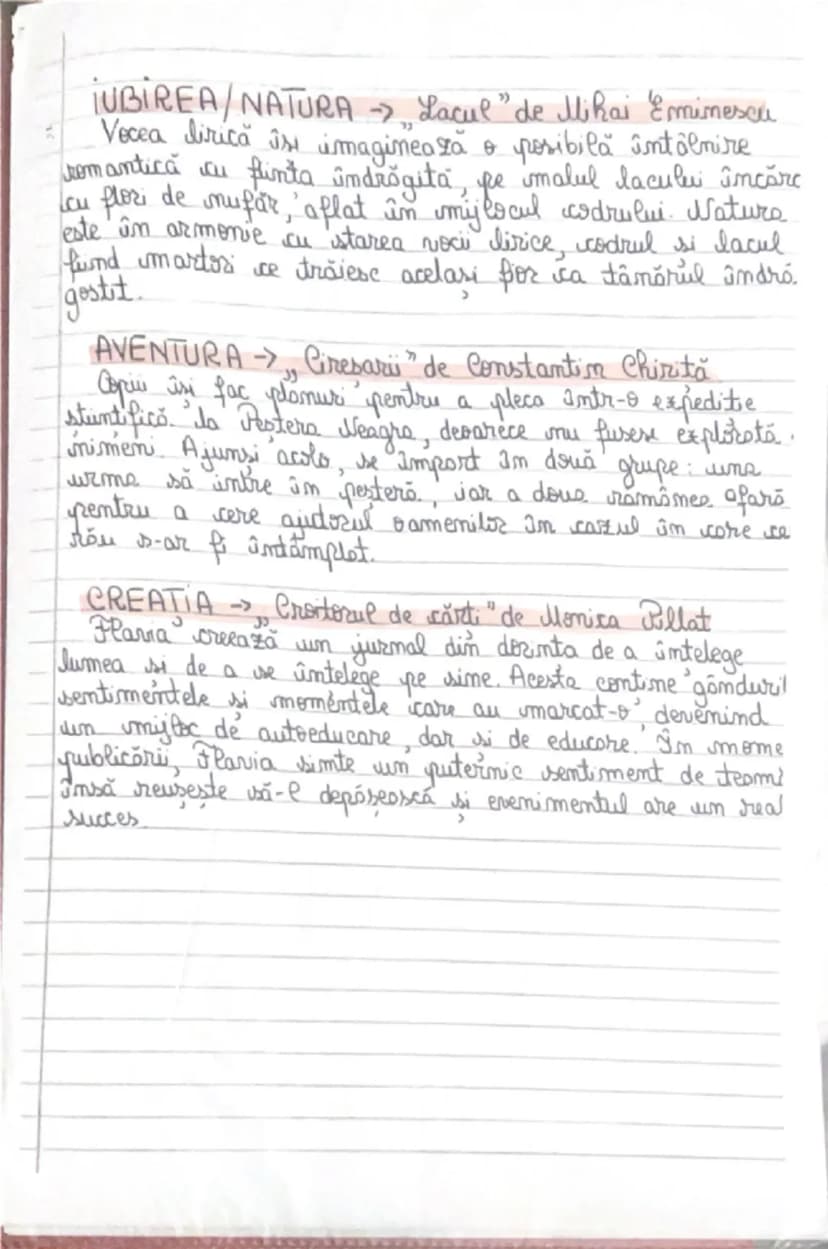 IUBIREA/NATURA → „Lacul" de Mihai Eminescu
Vocea lirică își imaginează o posibilă întâlnire
romantică cu ființa îndrăgită, pe malul lacului încărc
cu flori de nufăr, aflat în mijlocul codrului. Natura
este în armonie cu starea vocii lirice, codrul și lacul
fiind martori ce trăiesc același fior ca tânărul îndră
gostit.
AVENTURA → „Cireșarii" de Constantin Chiriță
Copiii își fac planuri pentru a pleca într-o expediție
științifică la Peștera Neagră, deoarece nu fusese explorată
nimeni. Ajunși acolo, se împart în două grupe: una
urma să intre în peșteră, iar a doua rămânea afară
pentru a cere ajutorul oamenilor în cazul în care ce
rău s-ar fi întâmplat.
CREAȚIA → „Croitorul de cărți" de Monica Pillat
Flavia creează un jurnal din dorința de a înțelege
lumea și de a se înțelege pe sine. Acesta conține gânduril
sentimentele și momentele care au marcat-o, devenind
un mijloc de autoeducare, dar și de educare. În mome
publicării, Flavia simte un puternic sentiment de teamă
însă reușește să-l depășească și evenimentul are un real
succes.